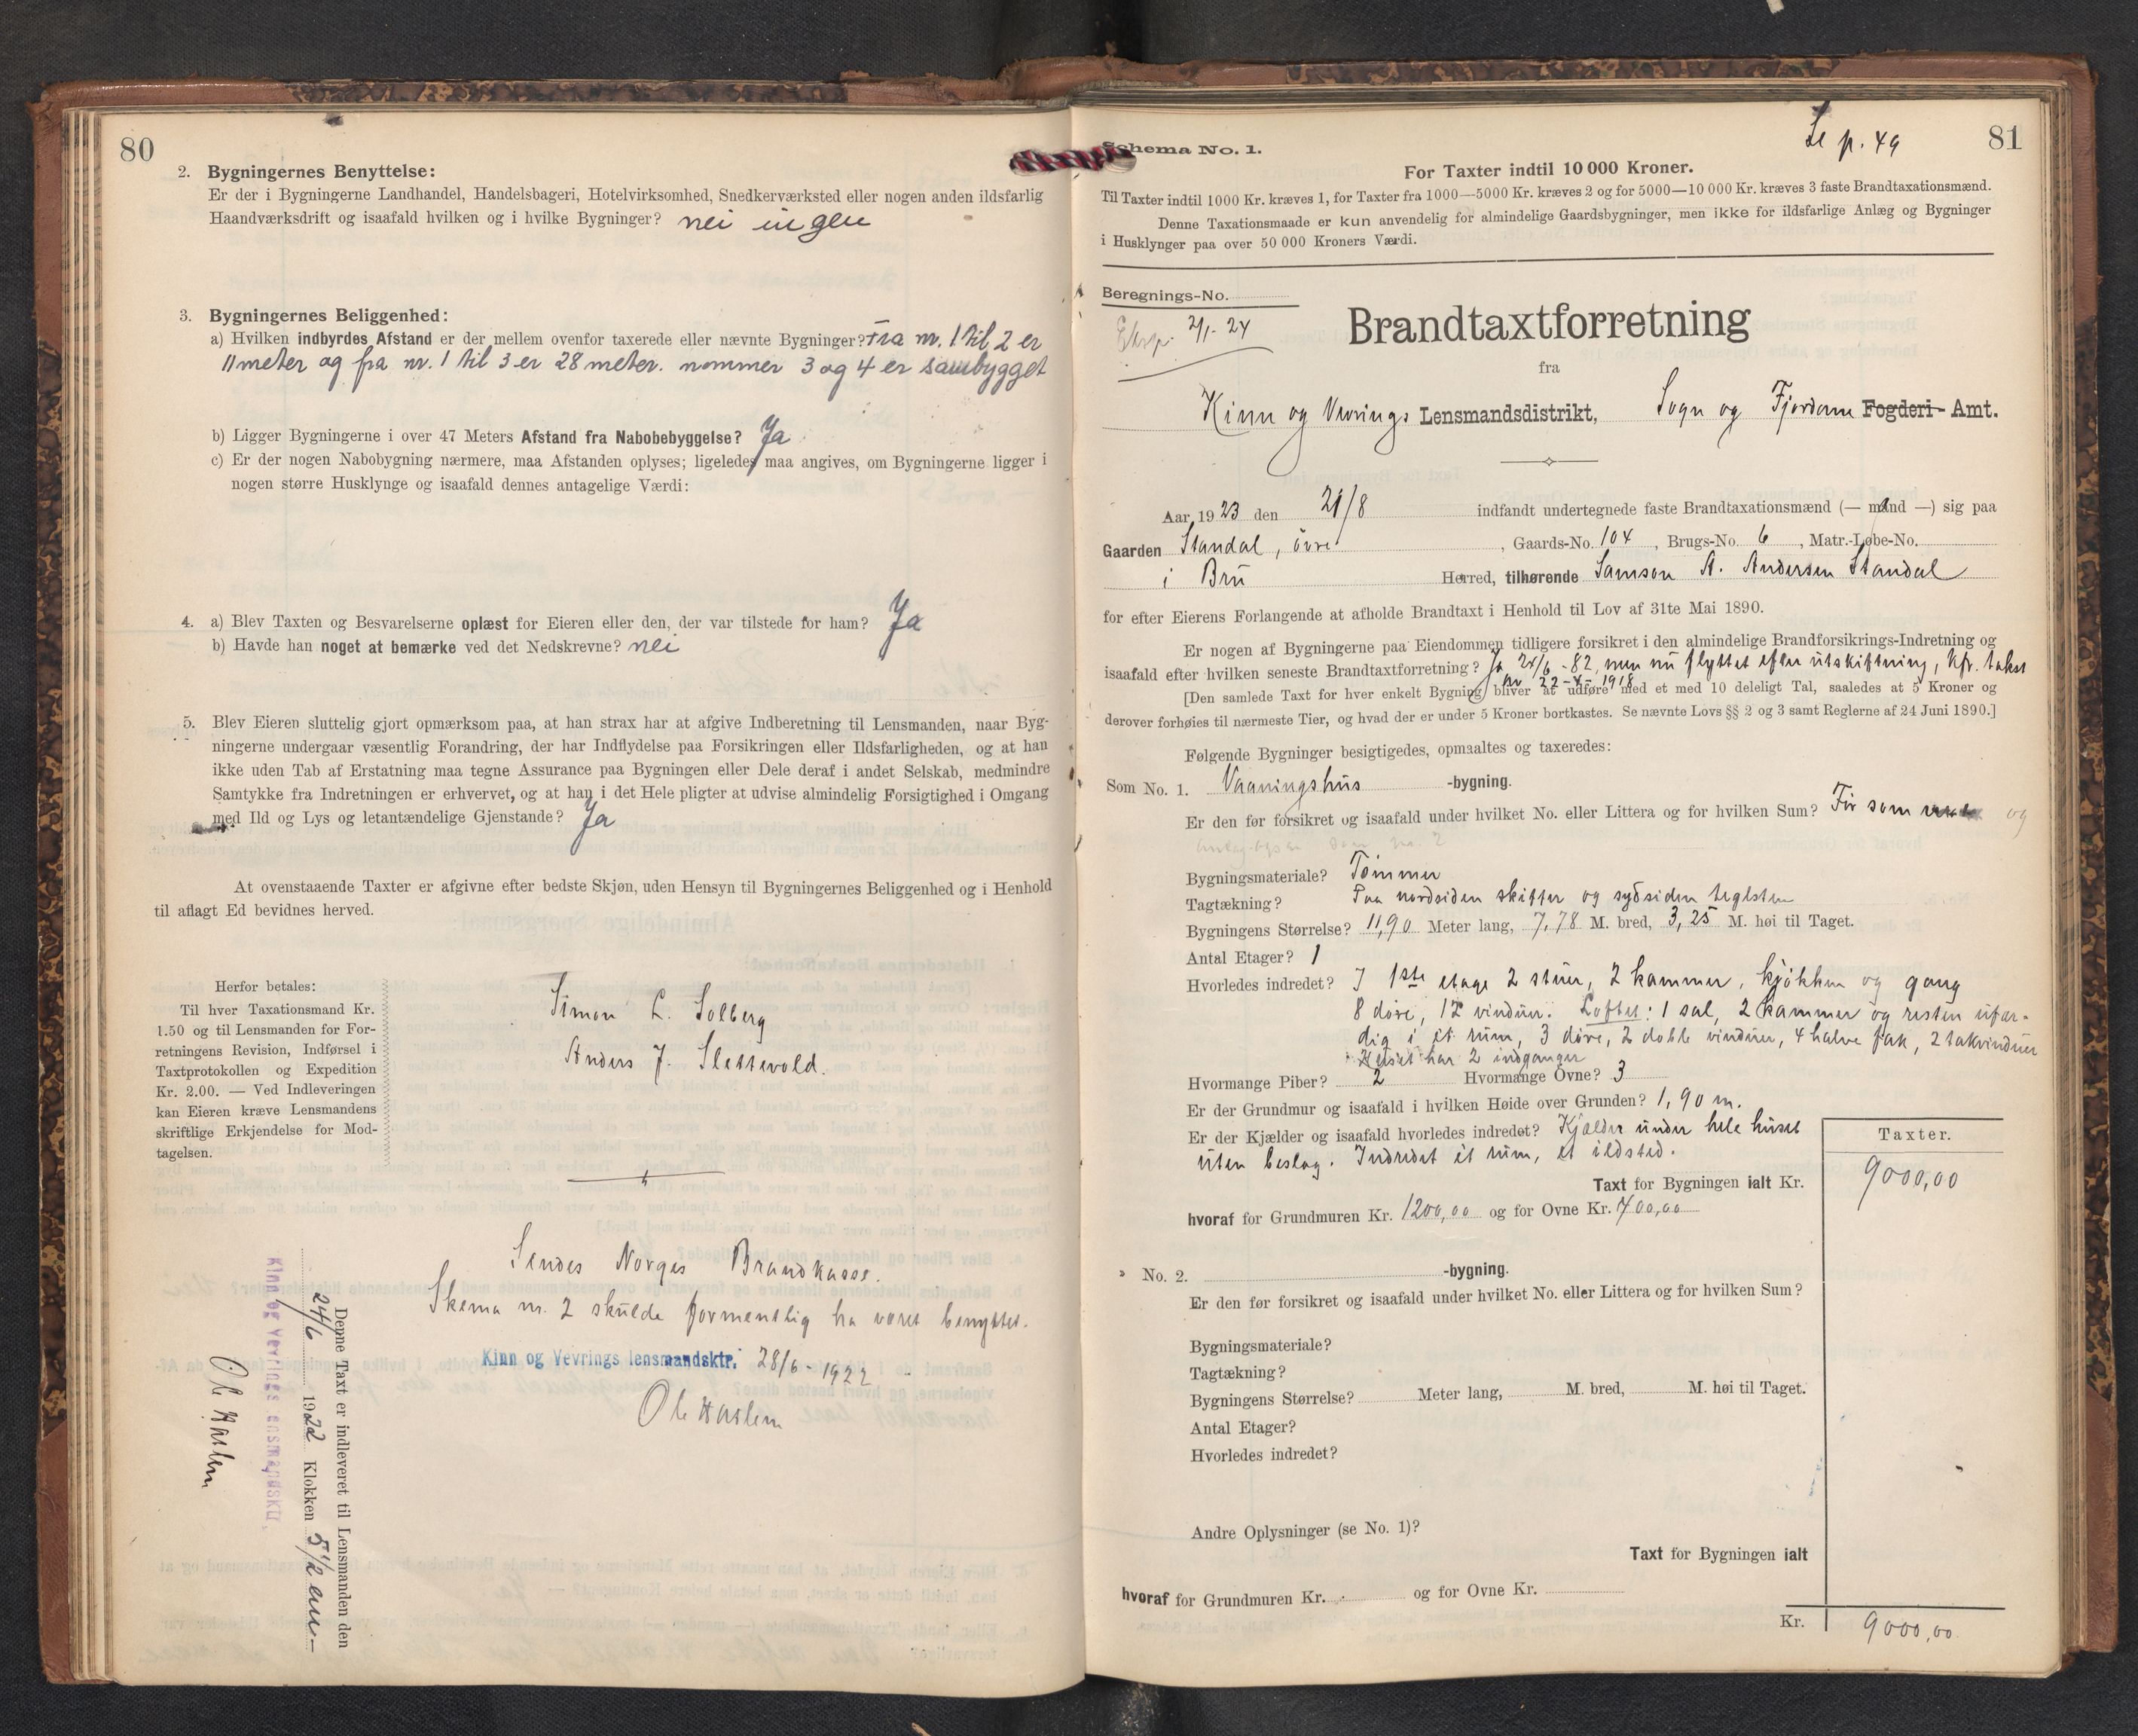 80
2. Bygningernes Benyttelse:
Er der i Bygningerne Landhandel, Handelsbageri, Hotelvirksomhed, Snedkerværksted eller nogen anden ildsfarlig
Haandværksdrift og isaafald hvilken og i hvilke Bygninger? nei ingen
3. Bygningernes Beliggenhed:
a) Hvilken indbyrdes Afstand er der mellem ovenfor taxerede eller nævnte Bygninger? Fra nr. 1 til 2 er
11 meter og fra nr. 1 til 3 er 28 meter. nommer 3 og 4 er sambygget
b) Ligger Bygningerne i over 47 Meters Afstand fra Nabobebyggelse? Ja
c) Er der nogen Nabobygning nærmere, maa Afstanden oplyses; ligeledes maa angives, om Bygningerne ligger i
nogen større Husklynge og isaafald dennes antagelige Værdi:
4. a) Blev Taxten og Besvarelserne oplæst for Eieren eller den, der var tilstede for ham? Ja
b) Havde han noget at bemærke ved det Nedskrevne? nei
5. Blev Eieren sluttelig gjort opmærksom paa, at han strax har at afgive Indberetning til Lensmanden, naar Byg-
ningerne undergaar væsentlig Forandring, der har Indflydelse paa Forsikringen eller Ildsfarligheden, og at han
ikke uden Tab af Erstatning maa tegne Assurance paa Bygningen eller Dele deraf i andet Selskab, medmindre
Samtykke fra Indretningen er erhvervet, og at han i det Hele pligter at udvise almindelig Forsigtighed i Omgang
med Ild og Lys og letantændelige Gjenstande? Ja
At ovenstaaende Taxter er afgivne efter bedste Skjøn, uden Hensyn til Bygningernes Beliggenhed og i Henhold
til aflagt Ed bevidnes herved.
Herfor betales:
Til hver Taxationsmand Kr.
1.50 og til Lensmanden for For-
retningens Revision, Indførsel i
Taxtprotokollen og Expedition
Kr. 2.00. — Ved Indleveringen
kan Eieren kræve Lensmandens
skriftlige Erkjendelse for Mod-
tagelsen.
Simon L. Solberg
Anders J. Slettevold.
Sendes Norges Brandkasse.
Skema nr. 2 skulde formentlig ha været benyttet.
Kinn og Vevrings lensmandsktr. 28/6 - 1922
Ole Haslem
Denne Taxt er indleveret til Lensmanden den
24/6 1922 Klokken 5 1/2 em—
Kinn og Vevrings lensmandsktr.
Ole Haslem
Se p. 49
81
Schema No. 1.
For Taxter indtil 10 000 Kroner.
Til Taxter indtil 1000 Kr. kræves 1, for Taxter fra 1000—5000 Kr. kræves 2 og for 5000—10 000 Kr. kræves 3 faste Brandtaxationsmænd.
Denne Taxationsmaade er kun anvendelig for almindelige Gaardsbygninger, men ikke for ildsfarlige Anlæg og Bygninger
i Husklynger paa over 50 000 Kroners Værdi.
Beregnings-No.
Eksp. 2/1-24
Brandtaxtforretning
fra
Kinn og Vevrings Lensmandsdistrikt, Sogn og Fjordane Fogderi- Amt.
Aar 1923 den 21/8 indfandt undertegnede faste Brandtaxationsmænd (— mand —) sig paa
Gaarden Standal, övre, Gaards-No. 104, Brugs-No. 6, Matr.-Løbe-No.
i Bru Herred, tilhørende Samson A. Andersen Standal
for efter Eierens Forlangende at afholde Brandtaxt i Henhold til Lov af 31te Mai 1890.
Er nogen af Bygningerne paa Eiendommen tidligere forsikret i den almindelige Brandforsikrings-Indretning og
isaafald efter hvilken seneste Brandtaxtforretning? Ja 24/6 -82, men nu flyttet efter utskiftning, kfr. takst
av 22-4-1918
[Den samlede Taxt for hver enkelt Bygning bliver at udføre med et med 10 deleligt Tal, saaledes at 5 Kroner og
derover forhøies til nærmeste Tier, og hvad der er under 5 Kroner bortkastes. Se nævnte Lovs §§ 2 og 3 samt Reglerne af 24 Juni 1890.]
Følgende Bygninger besigtigedes, opmaaltes og taxeredes:
Som No. 1. Vaaningshus -bygning.
Er den før forsikret og isaafald under hvilket No. eller Littera og for hvilken Sum? Før som og
som No. 2
Bygningsmateriale? Tømmer
Tagtækning? Paa nordsiden skiffer og sydsiden teglsten
Bygningens Størrelse? 11,90 Meter lang, 7,78 M. bred, 3,25 M. høi til Taget.
Antal Etager? 1
Hvorledes indredet? I 1ste etage 2 stuer, 2 kammer, kjøkken og gang
8 döre, 12 vinduer. Loftet: 1 sal, 2 kammer og resten ufær-
dig i et rum, 3 døre, 2 doble vinduer, 4 halve fak, 2 takvinduer
Huset har 2 indganger
Hvormange Piber? 2 Hvormange Ovne? 3
Er der Grundmur og isaafald i hvilken Høide over Grunden? 1,90 m.
Er der Kjælder og isaafald hvorledes indredet? Kjælder under hele huset
uten beslag. Indredet et rum, et ildsted.
Taxter.
Taxt for Bygningen ialt Kr. 9000,00
hvoraf for Grundmuren Kr. 1200,00 og for Ovne Kr. 400,00
No. 2. -bygning.
Er den før forsikret og isaafald under hvilket No. eller Littera og for hvilken Sum?
Bygningsmateriale?
Tagtækning?
Bygningens Størrelse? Meter lang, M. bred, M. høi til Taget.
Antal Etager?
Hvorledes indredet?
Andre Oplysninger (se No. 1)?
Taxt for Bygningen ialt
hvoraf for Grundmuren Kr. og for Ovne Kr.
Kr. 9000,00